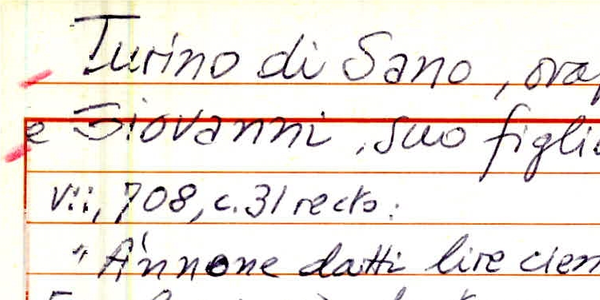 Turino di Sano, ora
e Giovanni, suo figlio
vii, 708, c. 31 recto:
"Ànnone datti lire cien